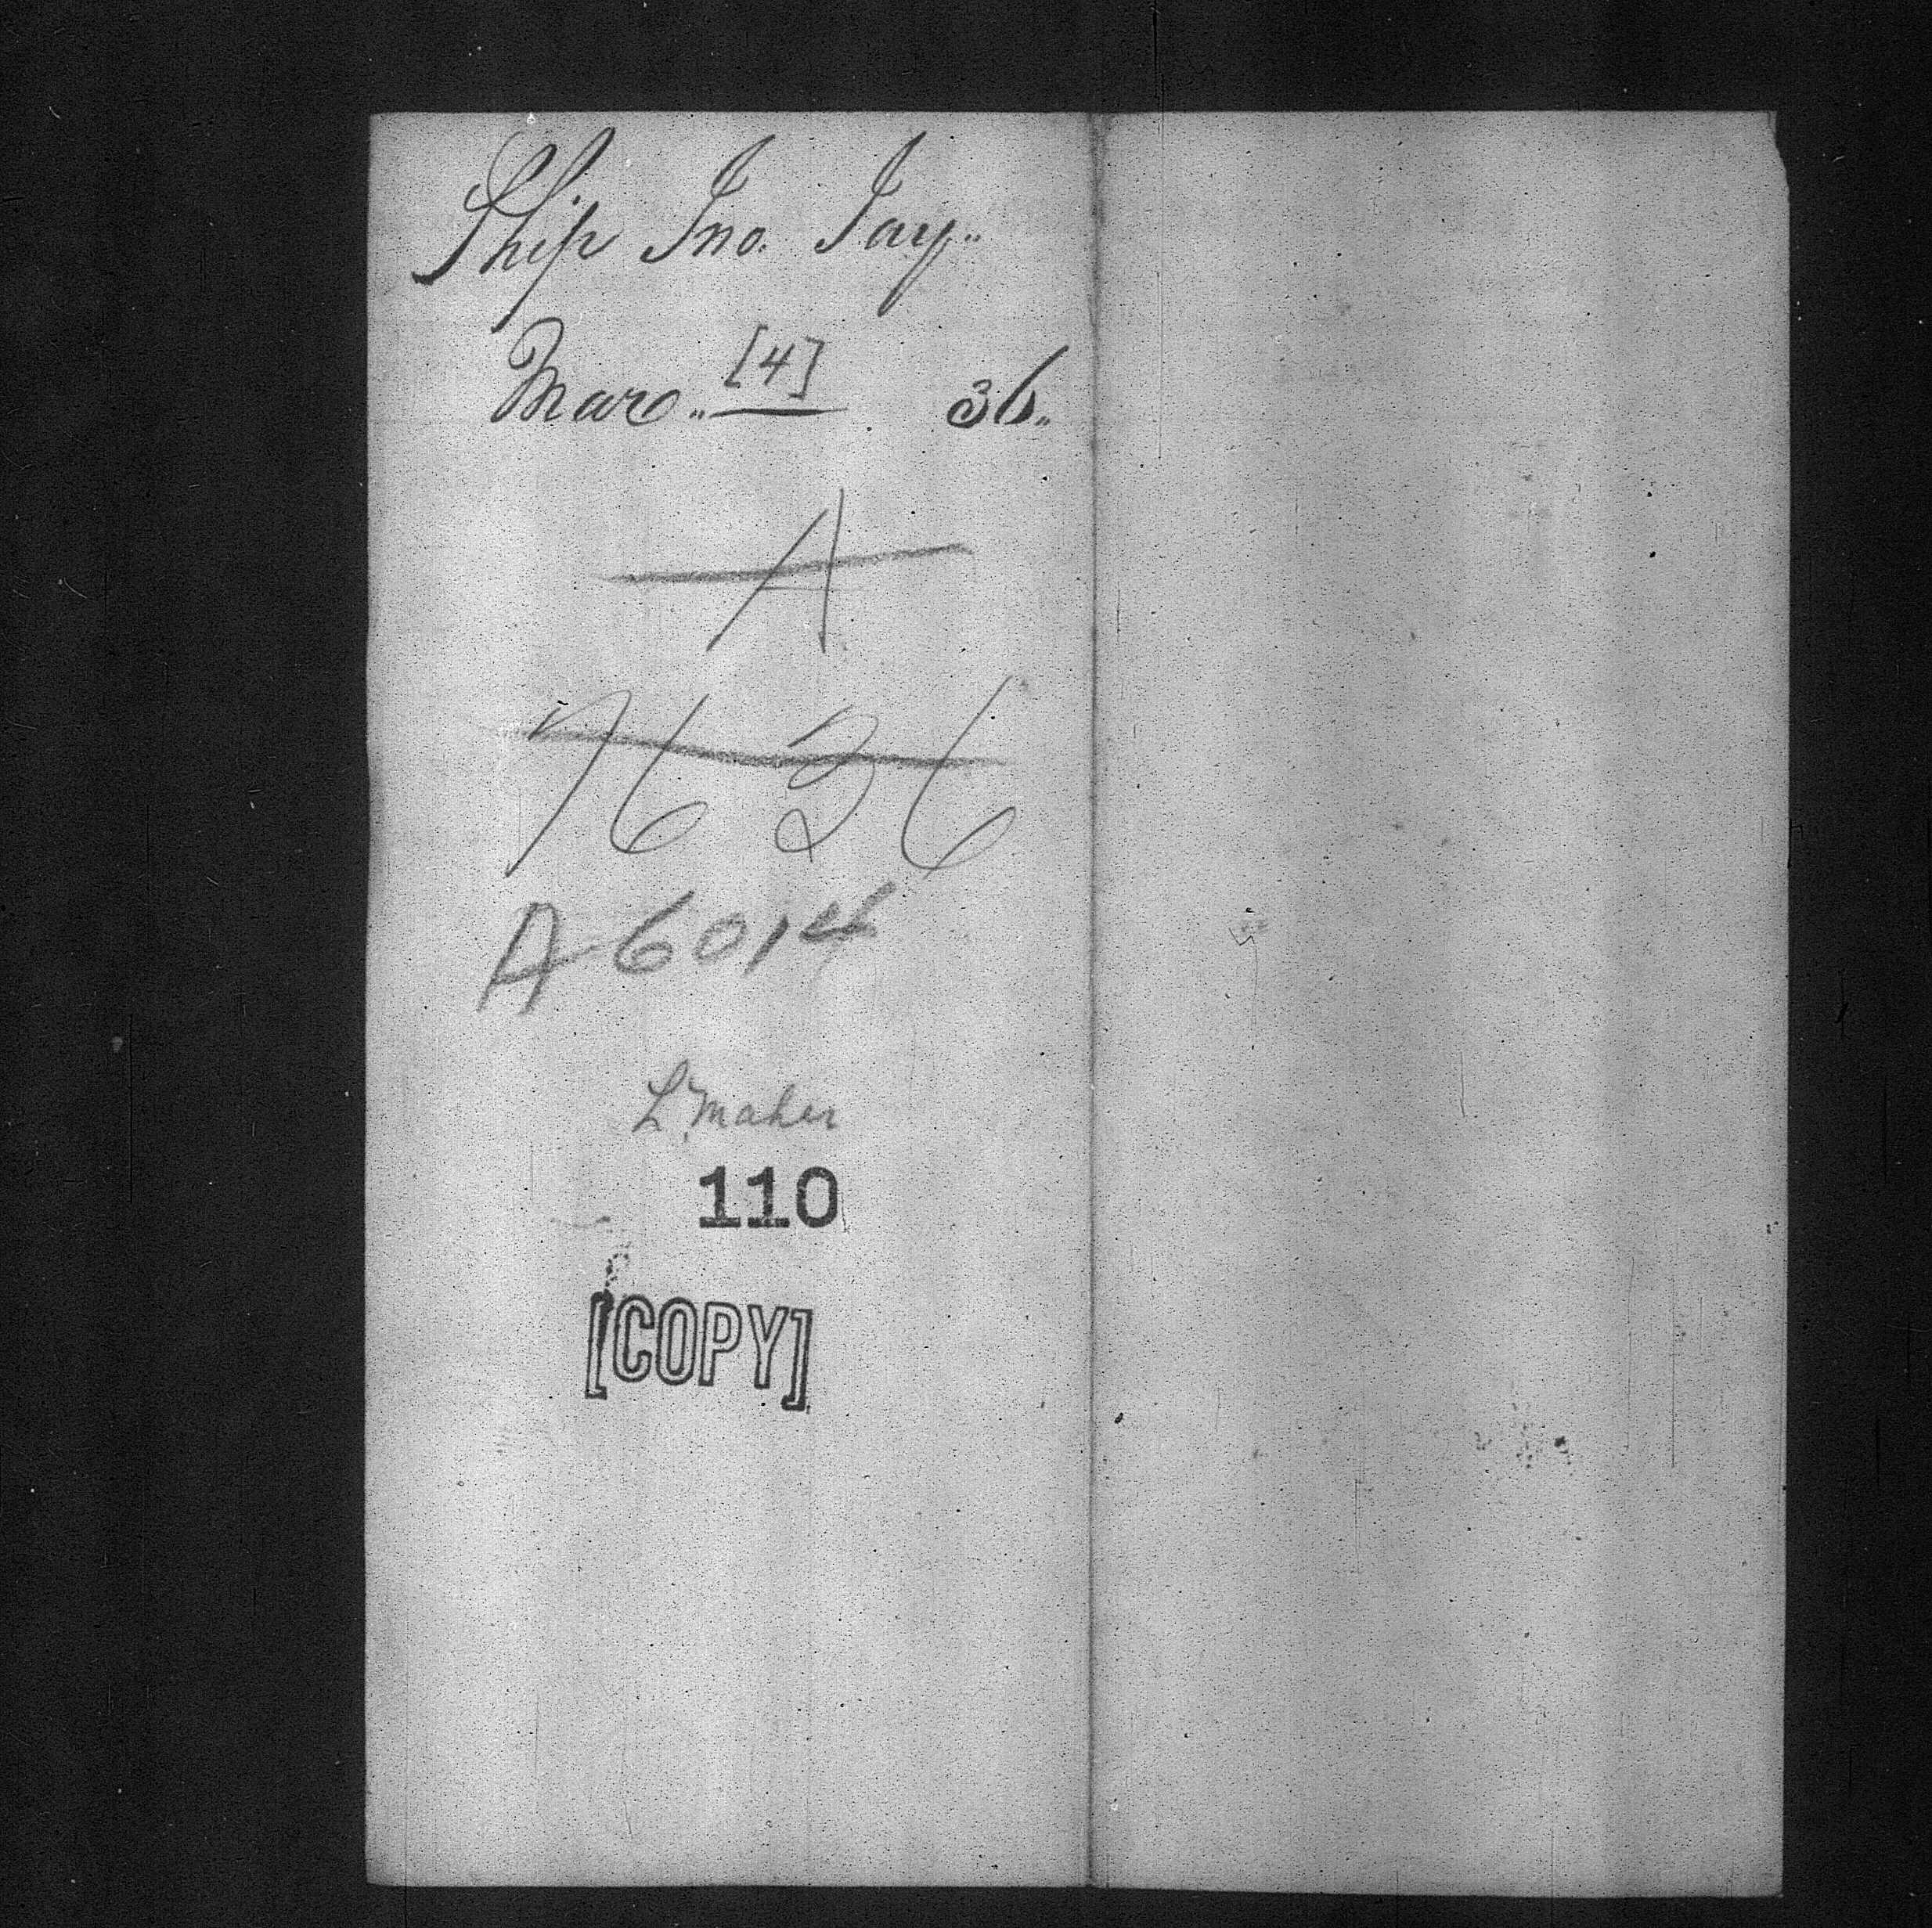 Ship Jno. Jay..
Marc.. [4] 36..
A
7636
A 6014
L. Maher
110
[COPY]